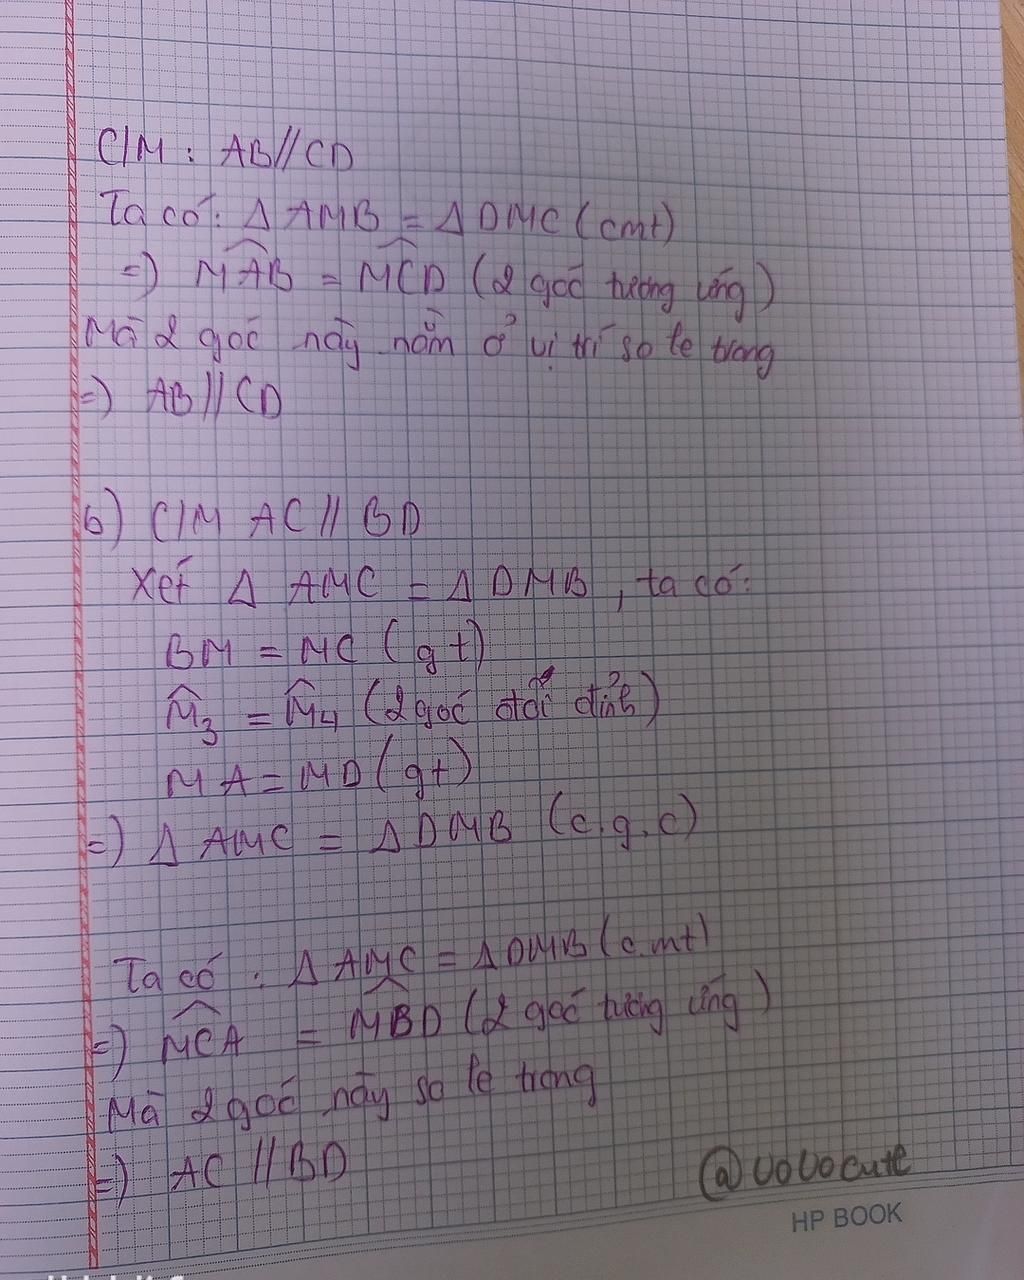 C/M : AB//CD
Ta có: Δ AMB = Δ DMC (cmt)
=) MAB = MCD (2 góc tương ứng)
Mà 2 góc này nằm ở vị trí so le trong
=) AB//CD
b) C/M AC // BD
Xét Δ AMC = Δ DMB, ta có:
BM = MC (gt)
M̂3 = M̂4 (2 góc đối đỉnh)
MA = MD (gt)
=) Δ AMC = Δ DMB (c.g.c)
Ta có : Δ AMC = Δ DMB (c.mt)
=) MCA = MBD (2 góc tương ứng)
Mà 2 góc này so le trong
=) AC // BD
@vovocute
HP BOOK